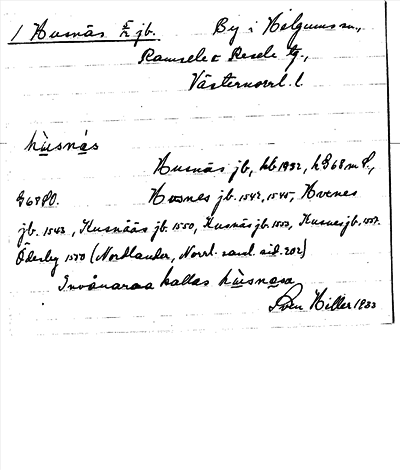 1 Husnäs jb. By i Helgums sn.,
Ramsele o Resele tg.,
Västernorrl. l.
hùsnás
Husnäs jb, kb 1932, hG68mfl.,
G68PO. Hosnes jb. 1542, 1545, Hvenes
jb. 1543, Husnääs jb. 1550, Husnäs jb. 1553, Husnes jb. 1557.
Ödesby 1570 (Nordlander, Norrl. saml. sid. 202)
Invånarna kallas hùsnasa
Sven Hiller 1933